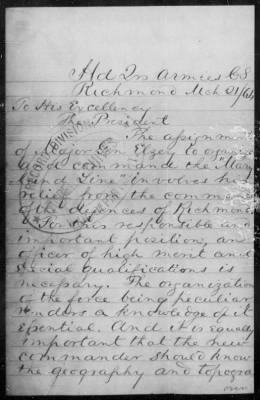 Hd Qrs Armies CS
Richmond Mch 21/64
To His Excellency
The President
The assignment
of Major Gen Elzey to organize
and command the "Mary
land Line" involves his
relief from the command
of the defences of Richmond.
For this responsible and
important position, an
officer of high merit and
special qualifications is
necessary. The organization
of the force being peculiar
renders a knowledge of it
essential. And it is equally
important that the new
commander should know
the geography and topogra
over